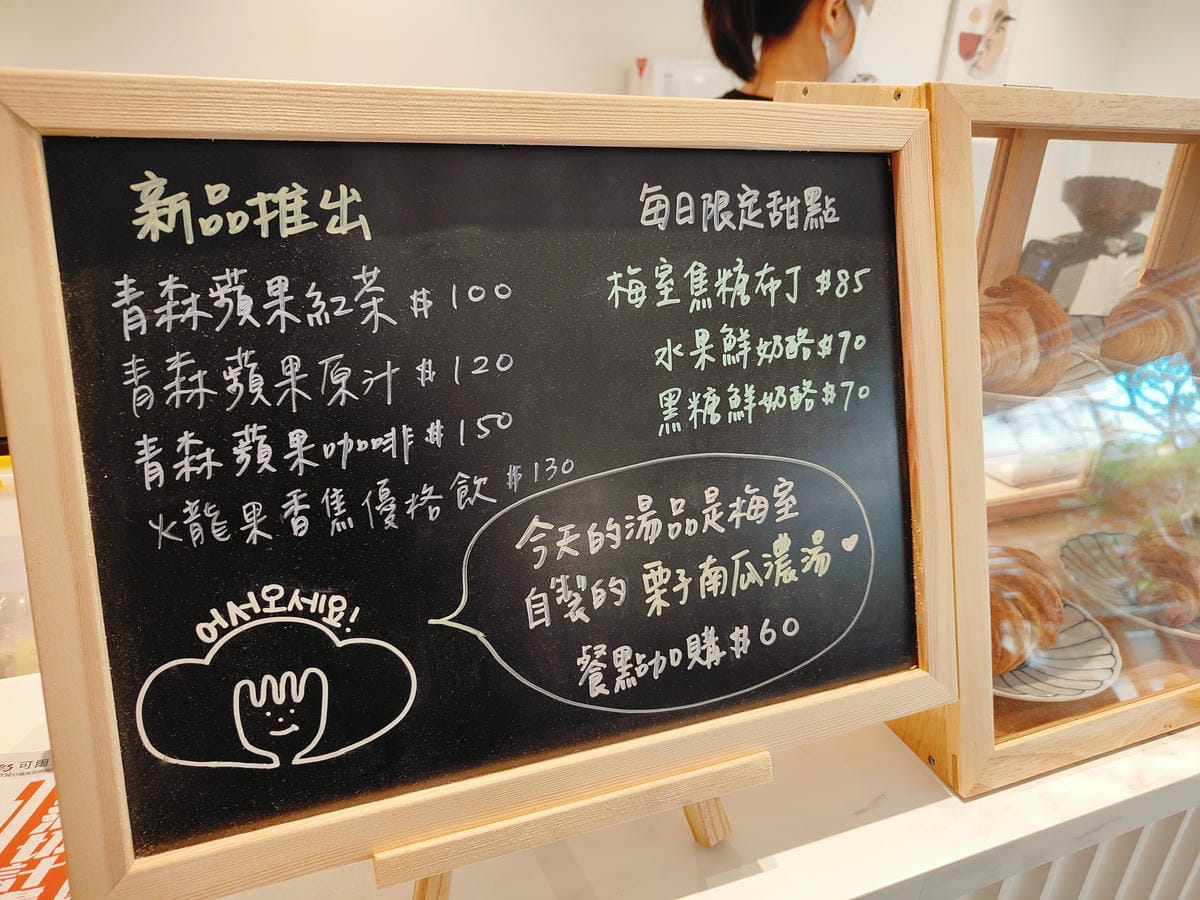 新品推出
青森蘋果紅茶 $100
青森蘋果原汁 $120
青森蘋果咖啡 $150
火龍果香蕉優格飲 $130
每日限定甜點
梅室焦糖布丁 $85
水果鮮奶酪 $70
黑糖鮮奶酪 $70
今天的湯品是梅室
自製的 栗子南瓜濃湯
餐點加購 $60
어서오세요!
可爾